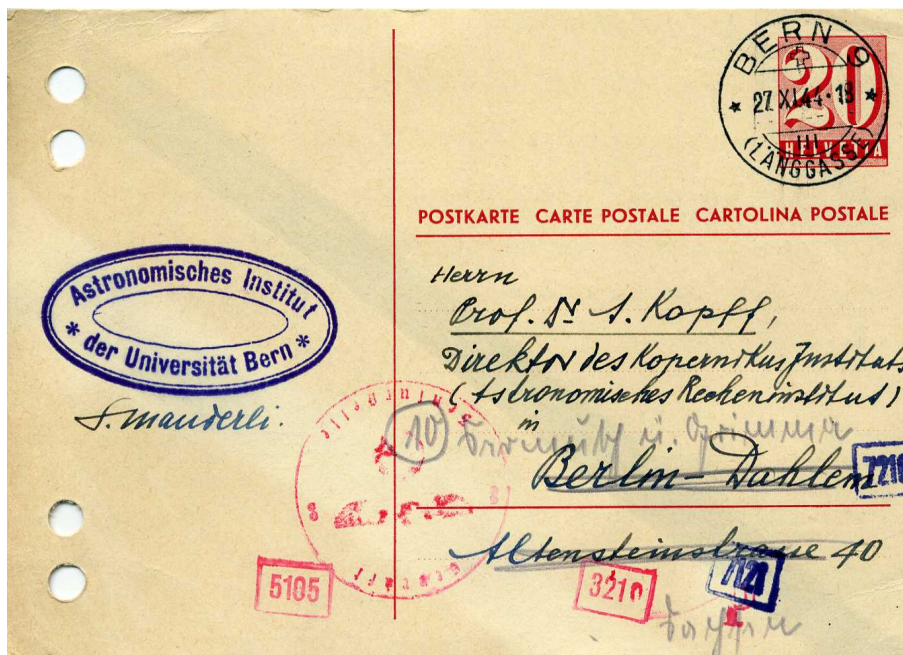 BERN 9
27.XI.44·18
III
(LÄNGGASSE)
20
HELVETIA
POSTKARTE CARTE POSTALE CARTOLINA POSTALE
Astronomisches Institut
* der Universität Bern *
S. Mauderli.
Herrn
Prof. Dr A. Kopff,
Direktor des Kopernikus Instituts
(Astronomisches Recheninstitut)
in
10
ü. Grimma
Berlin-Dahlem
7210
Altensteinstrasse 40
5105
3210
7121
Sachsen